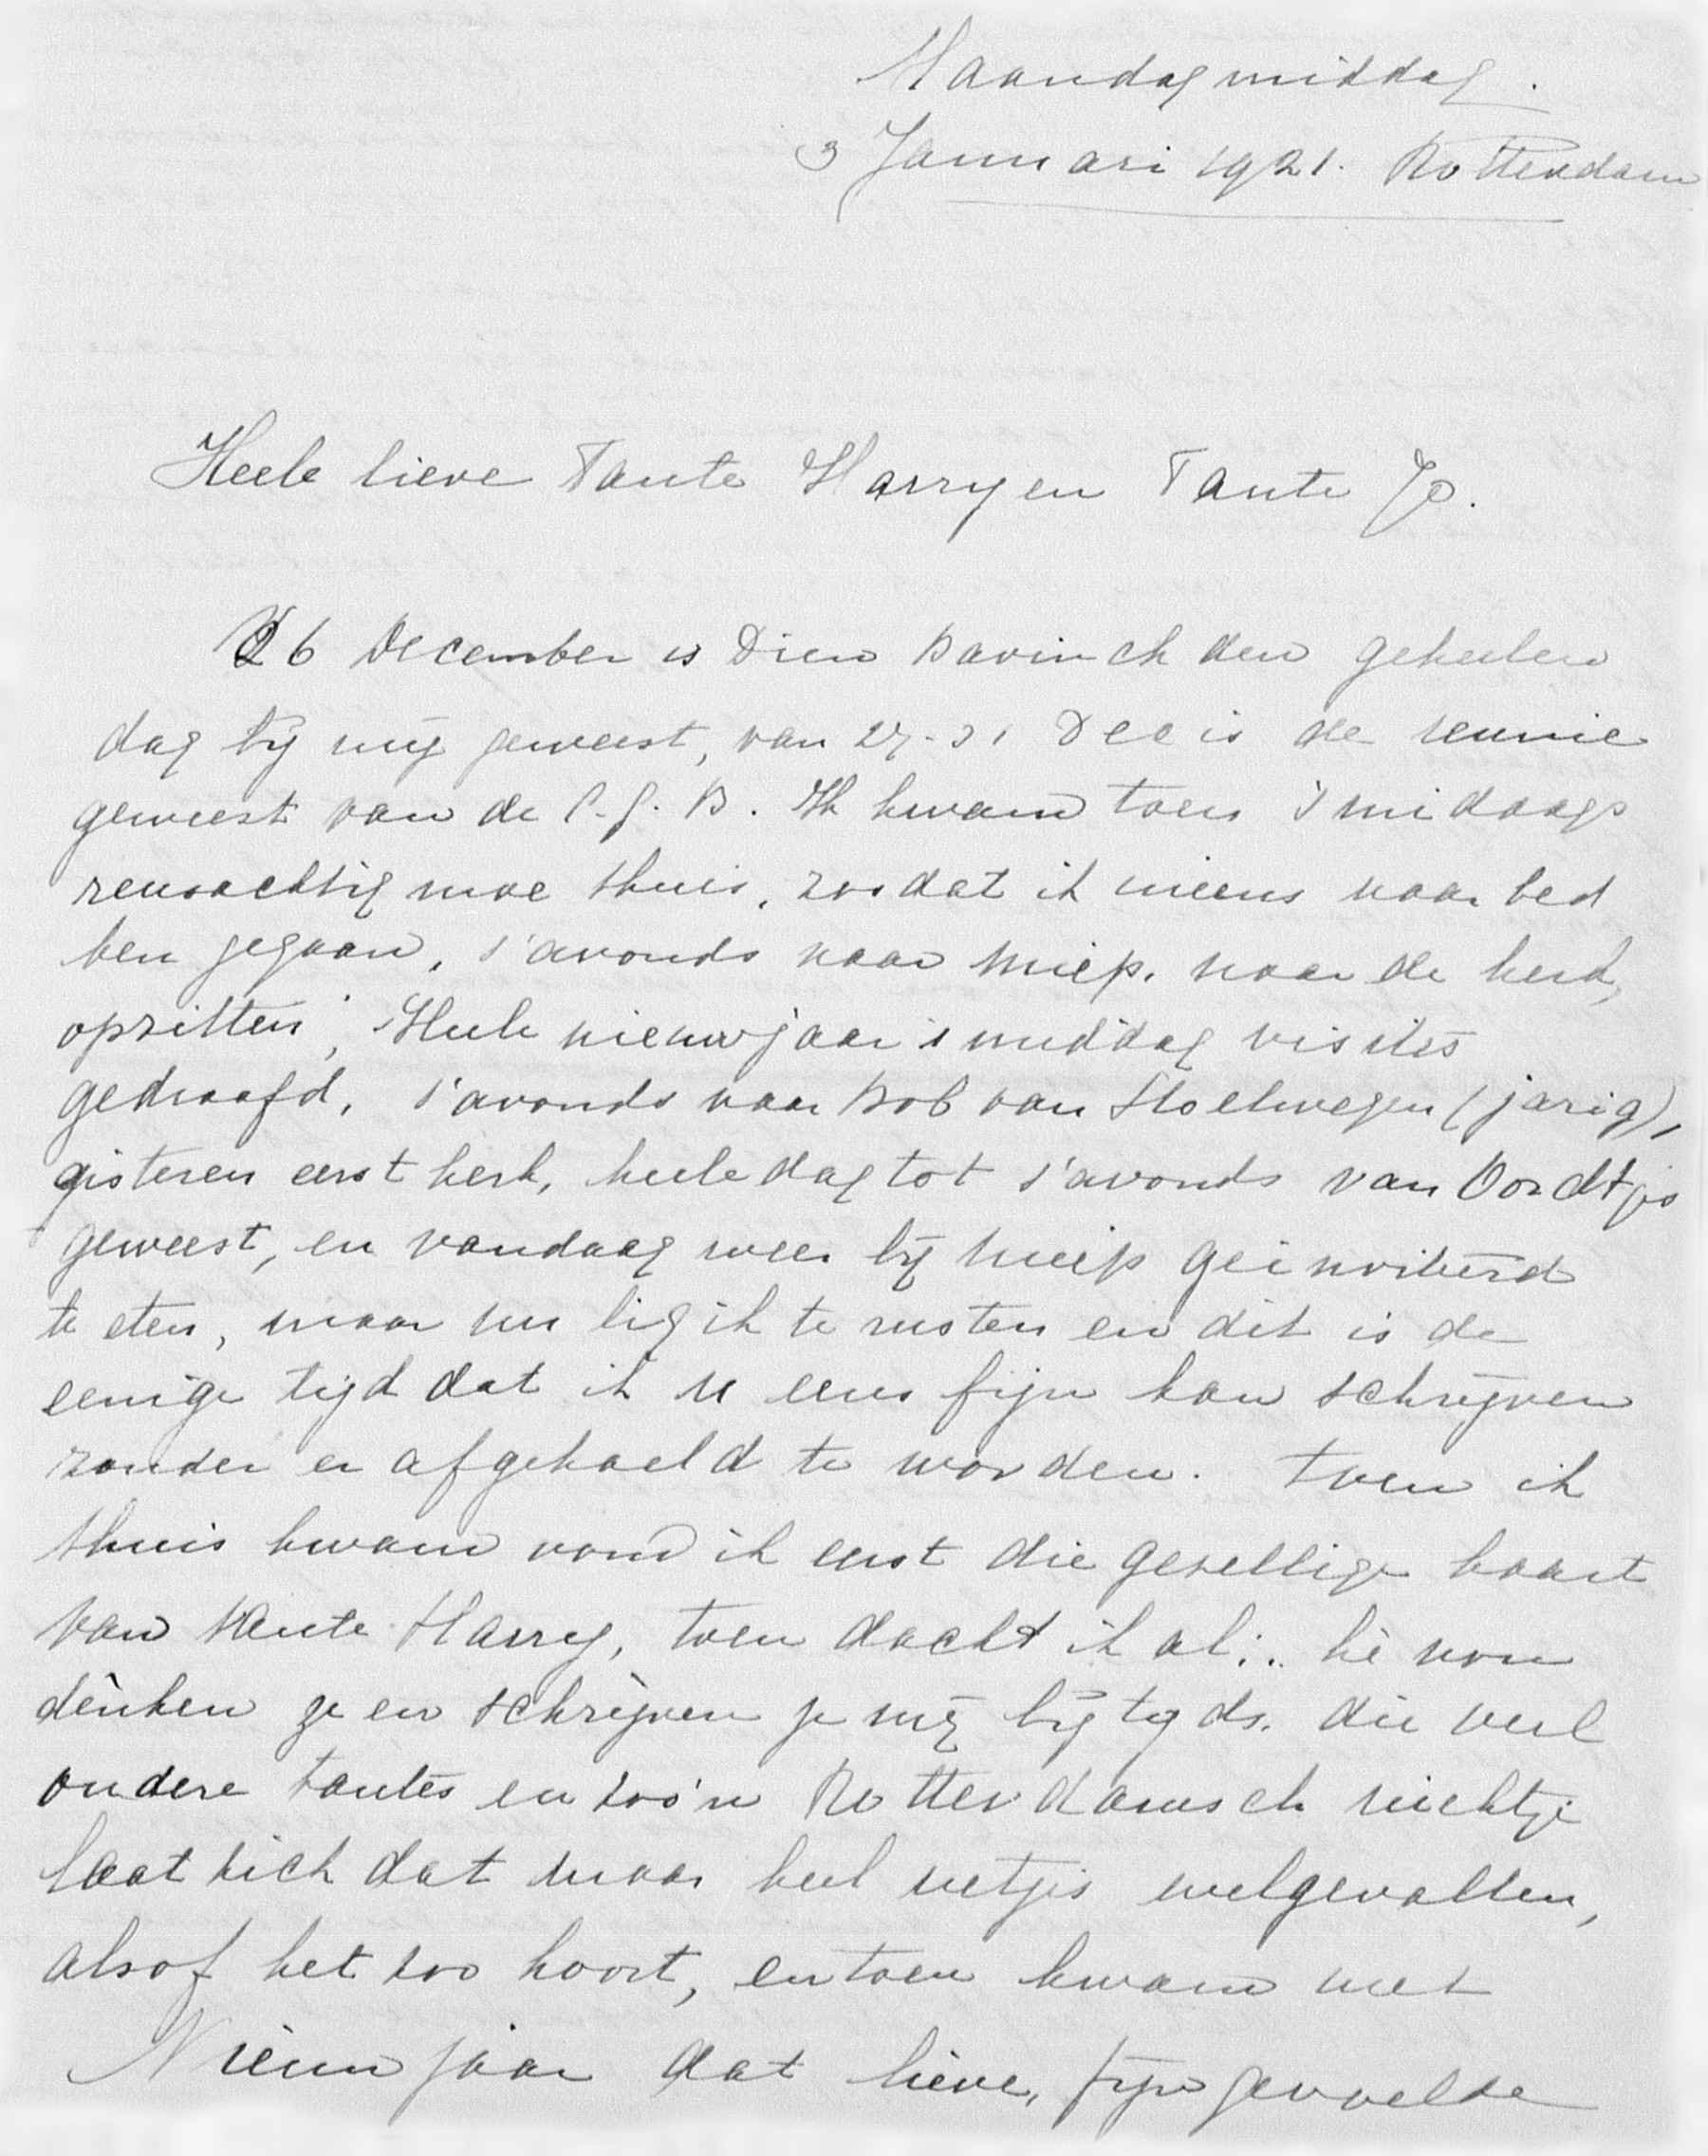 Maandagmiddag.
3 Januari 1921. Rotterdam
Heele lieve Tante Harry en Tante Jo.
26 December is Dien Bavinck den geheelen
dag bij mij geweest, van 27-31 Dec is de reunie
geweest van de C.J.B. Ik kwam toen 's midaags
reusachtig moe thuis, zoodat ik ineens naar bed
ben gegaan, s'avonds naar Miep. naar de kerk,
opzitten, Heele nieuwjaar's middag visites
gedraafd, s'avonds naar Bob van Stoelwegen (jarig),
gisteren eerst kerk, heele dag tot s'avonds van Oordtjes
geweest, en vandaag weer bij Miep geinviteerd
te eten, maar nu lig ik te rusten en dit is de
eenige tijd dat ik u eens fijn kan schrijven
zonder er afgehaeld te worden. Toen ik
thuis kwam vond ik eerst die gezellige kaart
van tante Harry, toen dacht ik al: .. hè nou
denken ze en schrijven ze mij bijtijds. die veel
oudere tantes en zoo'n Rotterdamsch nichtje
laat zich dat maar heel netjes welgevallen,
alsof het zoo hoort, en toen kwam met
Nieuwjaar dat lieve, fijn gevoelde